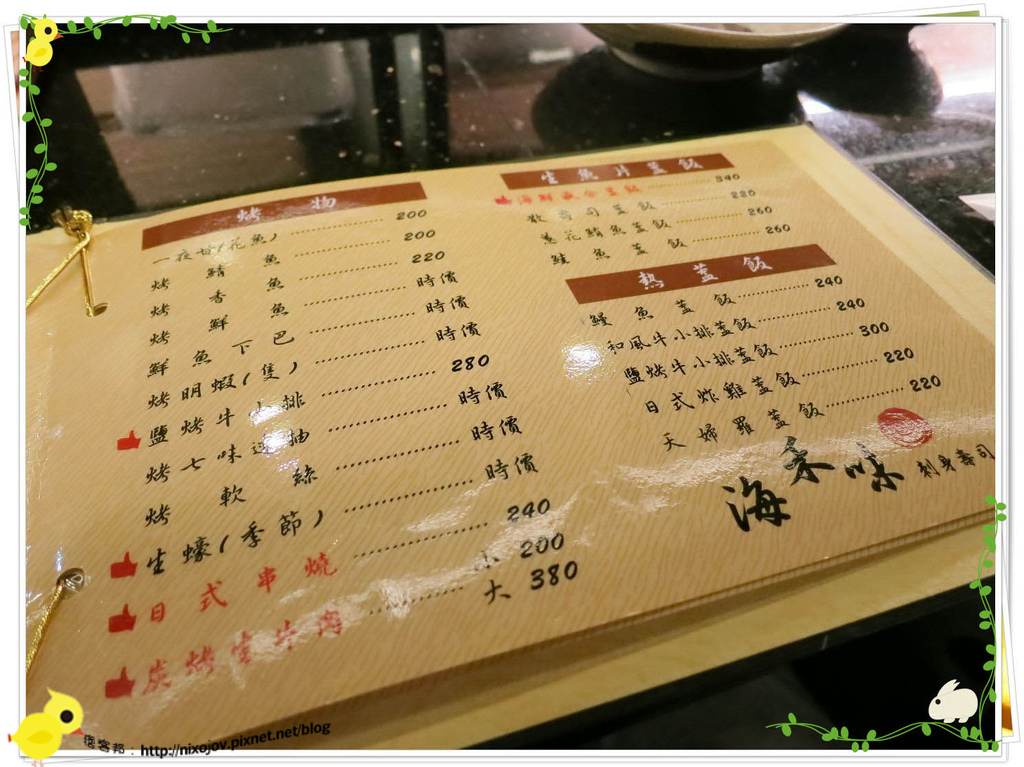 烤物
一夜干(花魚) 200
烤鯖魚 200
烤香魚 220
烤鮮魚 時價
鮮魚下巴 時價
烤明蝦(隻) 時價
鹽烤牛小排 280
烤七味透抽 時價
烤軟絲 時價
生蠔(季節) 時價
日式串燒 240
炭烤雪牛肉 小 200
大 380
生魚片蓋飯
海鮮綜合蓋飯 340
散壽司蓋飯 220
蔥花鮪魚蓋飯 260
鮭魚蓋飯 260
熱蓋飯
鰻魚蓋飯 240
和風牛小排蓋飯 240
鹽烤牛小排蓋飯 300
日式炸雞蓋飯 220
天婦羅蓋飯 220
海來味 刺身壽司
痞客邦：http://nixojov.pixnet.net/blog